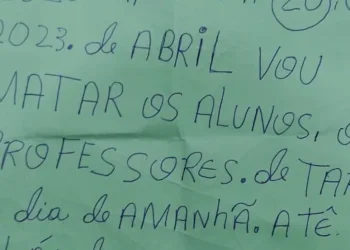 (20)
2023. de ABRIL VOU
MATAR OS ALUNOS,
PROFESSORES. de
dia de AMANHÃ. ATÉ